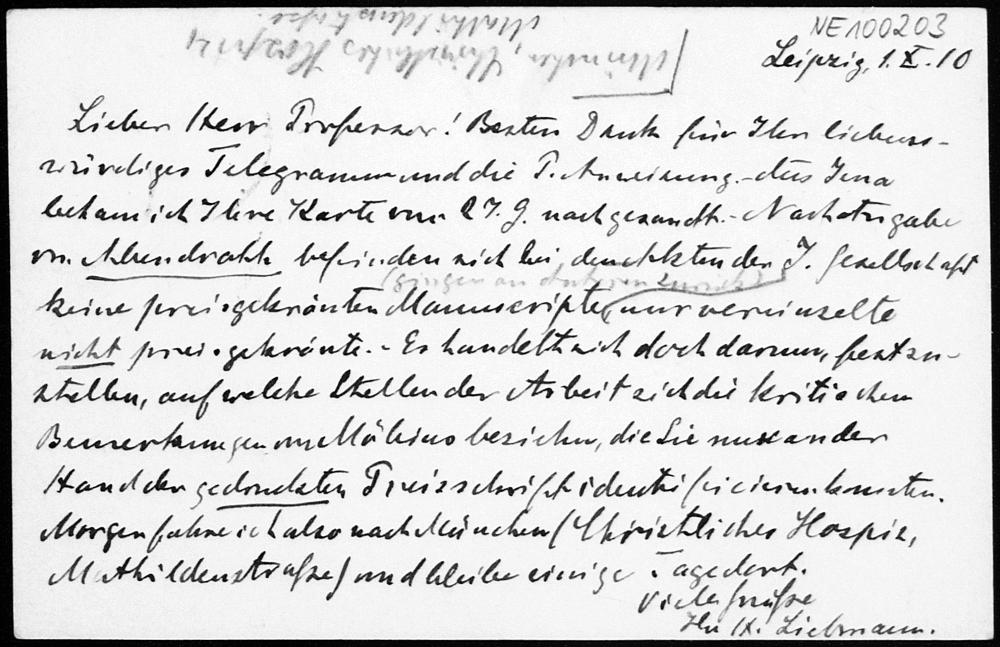 NE100203
München, Christliches Hospiz
Mathildenstraße.
Leipzig, 1. X. 10
Lieber Herr Professor! Besten Dank für Ihr liebens-
würdiges Telegramm und die P. Anweisung. Aus Jena
bekam ich Ihre Karte vom 27. 9. nachgesandt. - Nach Angabe
von Abendroth befinden sich bei den Akten der J. Gesellschaft
(gingen an Autoren zurück)
keine preisgekrönten Manuscripte, nur vereinzelte
nicht preisgekrönte. - Es handelt sich doch darum, festzu-
stellen, auf welche Stellen der Arbeit sich die kritischen
Bemerkungen von Möbius beziehen, die Sie nur an der
Hand der gedruckten Preisschrift identificieren konnten.
Morgen fahre ich also nach München (Christliches Hospiz,
Mathildenstraße) und bleibe einige Tage dort.
Viele Grüße
Ihr H. Liebmann.